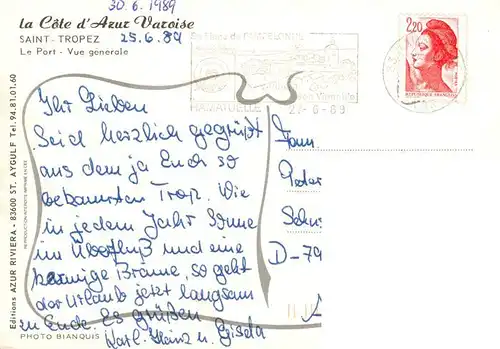 30.6.1989
la Côte d'Azur Varoise
SAINT-TROPEZ 25.6.89
Le Port - Vue générale
RAMATUELLE
27-6-89
2,20
REPUBLIQUE FRANÇAISE
Ihr Lieben
Seid herzlich gegrüßt
aus dem ja Euch so
bekannten Trop. Wie
in jedem Jahr Sonne
im Überfluß und eine
kernige Bräune, so geht
der Urlaub jetzt langsam
zu Ende. Es grüßen
Karl-Heinz u. Gisela
Fam.
Peter
D-79
Editions AZUR RIVIERA - 83600 ST. AYGULF Tel. 94.81.01.60
REPRODUCTION INTERDITE
PHOTO BIANQUIS